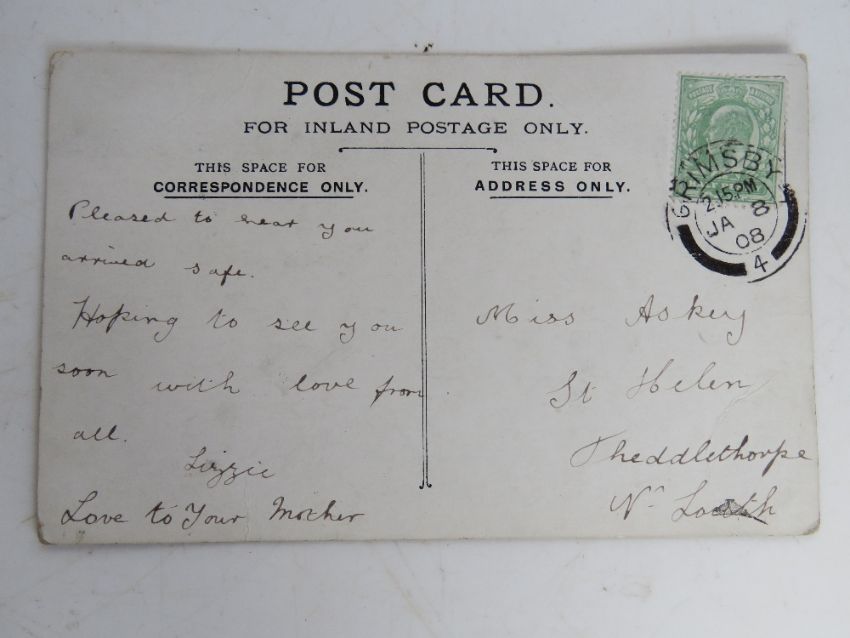 POST CARD.
FOR INLAND POSTAGE ONLY.
THIS SPACE FOR
CORRESPONDENCE ONLY.
Pleased to hear you
arrived safe.
Hoping to see you
soon with love from
all.
Lizzie
Love to Your Mother
THIS SPACE FOR
ADDRESS ONLY.
Miss Askey
St Helen
Theddlethorpe
Nr Louth
GRIMSBY
2.15 PM
JA 8
08
4